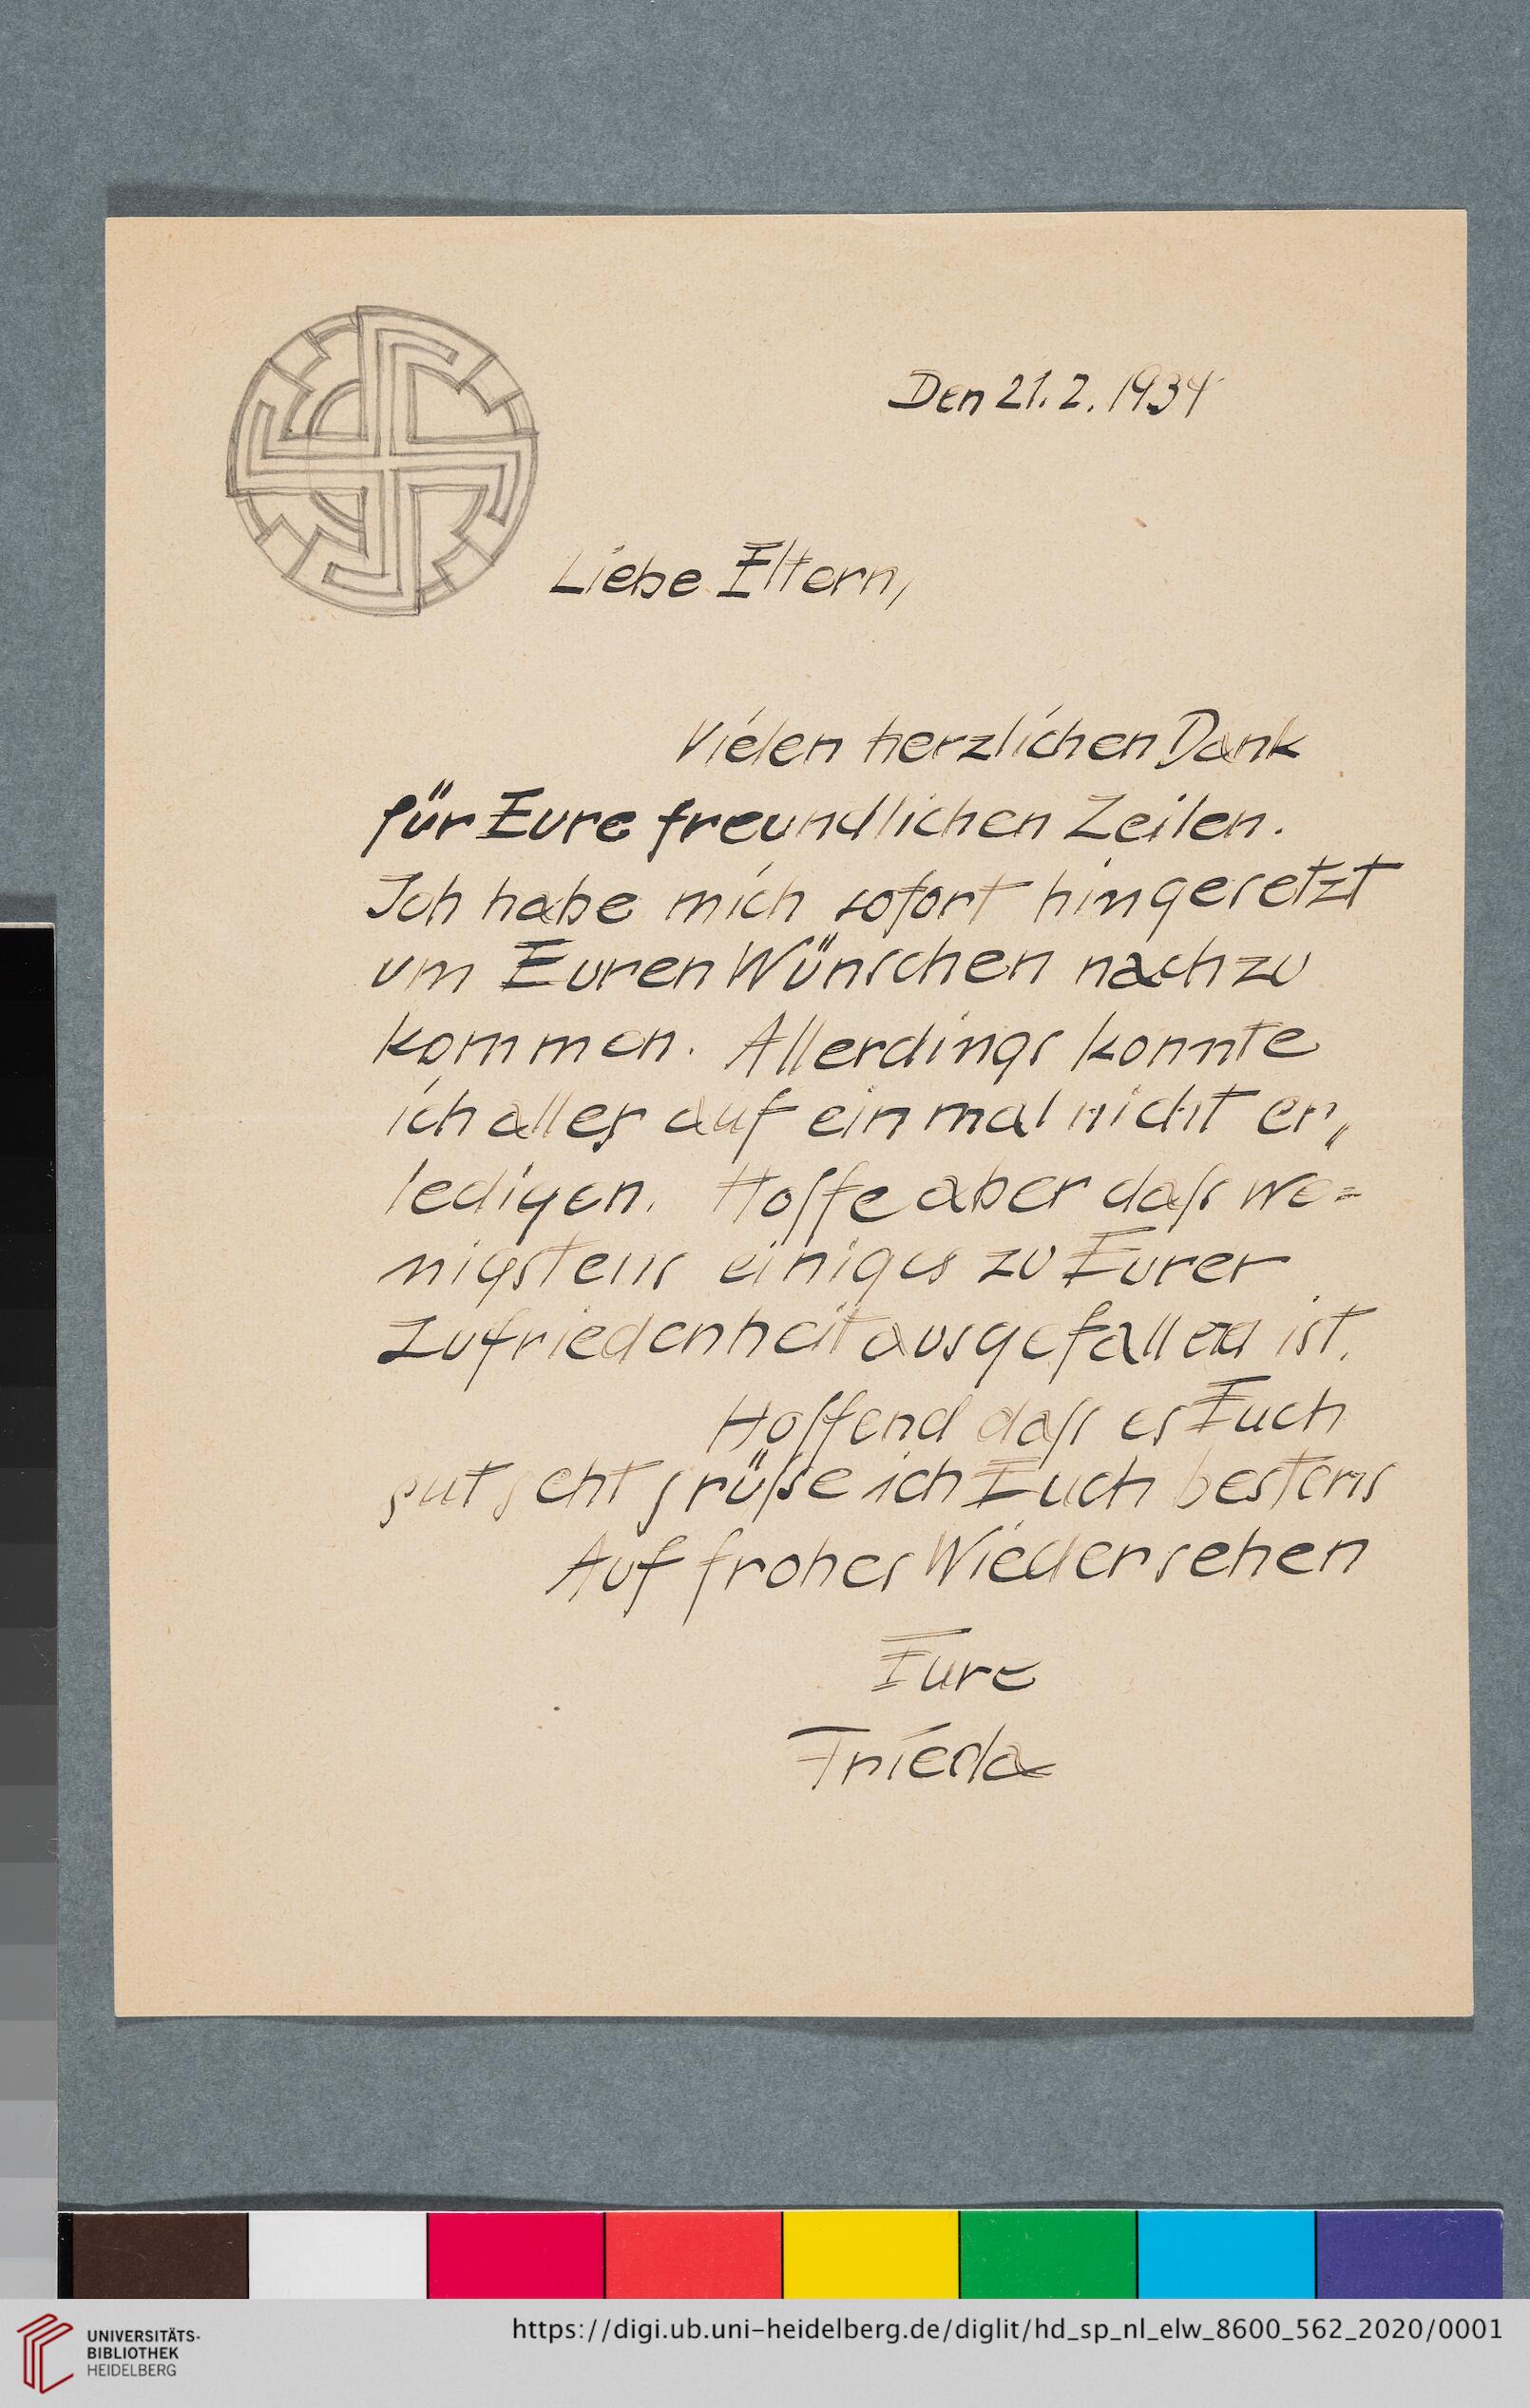 Den 21.2.1934
Liebe Eltern,
Vielen herzlichen Dank
für Eure freundlichen Zeilen.
Ich habe mich sofort hingesetzt
um Euren Wünschen nachzu
kommen. Allerdings konnte
ich alles auf einmal nicht er„
ledigen. Hoffe aber dass we=
nigstens einiges zu Eurer
Zufriedenheit ausgefallen ist.
Hoffend dass es Euch
gut geht grüße ich Euch bestens
Auf frohes Wiedersehen
Eure
Frieda
UNIVERSITÄTS-
BIBLIOTHEK
HEIDELBERG
https://digi.ub.uni-heidelberg.de/diglit/hd_sp_nl_elw_8600_562_2020/0001